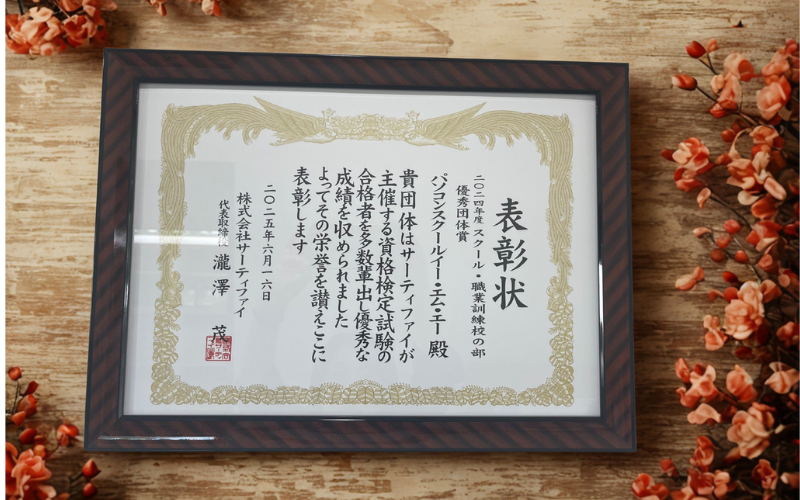 表彰状
二〇二四年度 スクール・職業訓練校の部
優秀団体賞
パソコンスクールイー・エム・エー 殿
貴団体はサーティファイが
主催する資格検定試験の
合格者を多数輩出し優秀な
成績を収められました
よってその栄誉を讃えここに
表彰します
二〇二五年六月一六日
株式会社サーティファイ
代表取締役 瀧澤 茂